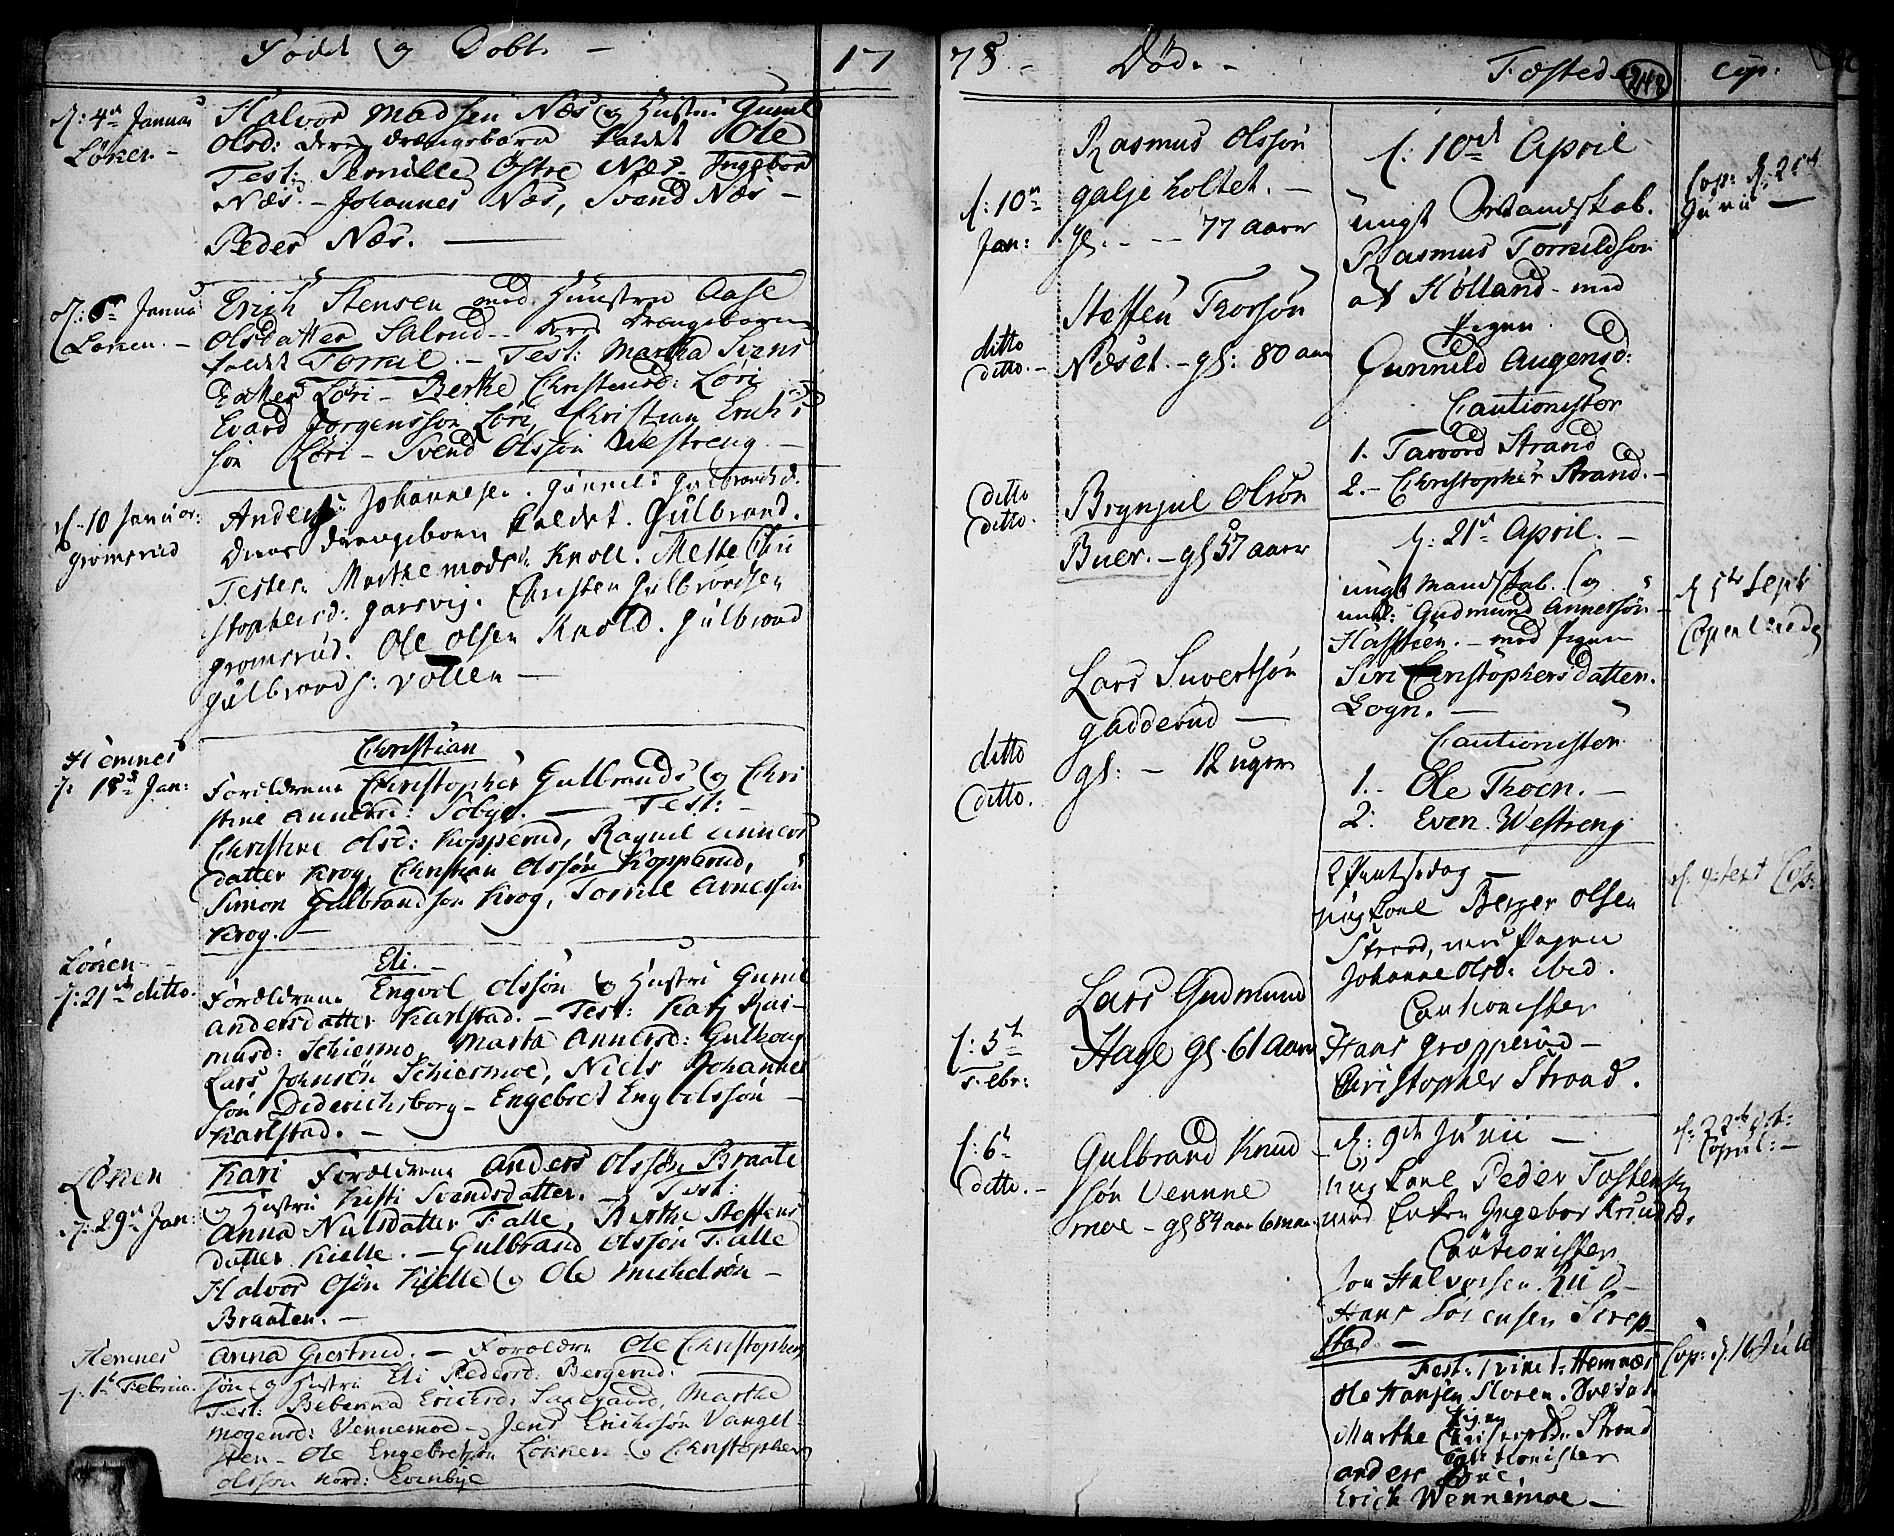 Født og Døbt. –
17
78 –
Død. –
Fæsted
248
cop:
d: 4de Januar
Løken. –
Halvor Madsen Næs og Hustru Gunil
Olsd: deres drængebarn kaldet Ole
Test: Pernille Østre Næs. Ingebor
Næs. – Johannes Næs, Svend Næs –
Peder Næs. –
d: 6te Janua
Løken. –
Erich Stensen med Hunstru Aase
Olsdatter Salrud – deres drængebarn
kaldet Torkil. – Test: Martha Svens
datter Løri – Berthe Christensd: Løri
Evard Jørgenssøn Løri, Christian Erichs
søn Løri – Svend Olssøn Westreng. –
d. 10 Januar:
gromsrud
Anders Johannesen. Gunnil Gulbrandsd.
deres drængebarn kaldet. Gulbrand.
Tester. Marthe Madsd. Knoll. Mette Chri
stophersd: garsvig. Christen Gulbrandsen
gromsrud. Ole Olsen Knold. Gulbrand
Gulbrands: Vollen –
Hemnes
d. 18de Jan:
Christian
Forældrene Christopher Gulbrands og Chri
stine Annersd: Sobye. – Test: –
Christine Olsd: Kopperud, Ragnil Anners
datter Krog, Christian Olssøn Kopperud,
Simon Gulbrandsøn Krog, Torkil Arnessøn
Krog. –
Løken –
d: 21de ditto.
Eli. –
Forældrene Engvol Olssøn og Hustru Gunil
Andersdatter Karlstad. – Test: Kari Ras
musd: Schiermo, Marta Annersd: Gulhoug
Lars Johnsøn Schiermoe, Niels Johannes
søn Diderichsborg – Engebret Engvelssøn –
Karlstad. –
Løken
d: 29de Jan:
Kari Forældrene Anders Olssøn Braate
og Hustru Kisti Svendsdatter. – Test:
Anna Nielsdatter Falle, Berthe Steffens
datter Kielle. – Gulbrand Olssøn Falle
Halvor Osøn Kielle og Ole Michelsøn –
Braaten. –
Hemnes
d. 1te Februa.
Anna Giertrud. – Forældre Ole Christophers
søn og Hustru Eli Pedersd. Bergerud.
Test: Bebenna Erichsd: Marthe
Mogensd: Vennemoe – Jens Erichssøn Vangel
sten – Ole Engebretsøn Løkken og Christopher
Olssøn nord: Evenbye
d: 10de
Jan:
Rasmus Olssøn
galjeholtet. –
gl. – – – 77 aarer
ditto
ditto. –
Steffen Thorsøn
Næset. – gl: 80 aar
ditto
ditto.
Brynjul Olsøn
Buer. – gl 57 aarer
ditto
ditto.
Lars Siuertsøn
gadderud –
gl: – 12 uger
d: 5t
Febr:
Lars Gudmund
Hage gl. 61 aarer
d: 6t
ditto. –
Gulbrand Knud
søn Vennne
moe – gl 84 aar 6 maa
d: 10de April
ungt Mandskab.
Rasmus Torkildsøn
af Hølland – med
Pigen
Gunnild Augensd:
Cautionister
1. Tarvord Strand
2. – Christopher Strand. –
Cop: d: 25de
Junii –
d: 21de April. –
ungt Mandskab. og
Gudmund Annersøn
– med Pigen
Siri Christophersdatter.
Sogn. –
Cautionister
1. – Ole Thoen. –
2. Even Westreng
d 5te Sept
2 Pintsedag
ung Karl Berger Olsen
Strand, med Pigen
Johanne Olsd: ibid.
Cautionister
Hans Gropperud –
Christopher Strand.
d: 9de Junii –
ung Karl Peder Tostensen
med Enken Ingebor Knudsd.
Cautionister
Jon Halvorsen Rud –
Hans Sørensen Strep
stad –
Copul: –
Fest: Trinit: Hemnæs
Ole Hansen Sloren.
Pigen
Marthe Christophersd. Strand
Cautionister
Anders
Erich Wennemoe –
Cop: d: 16 Julii